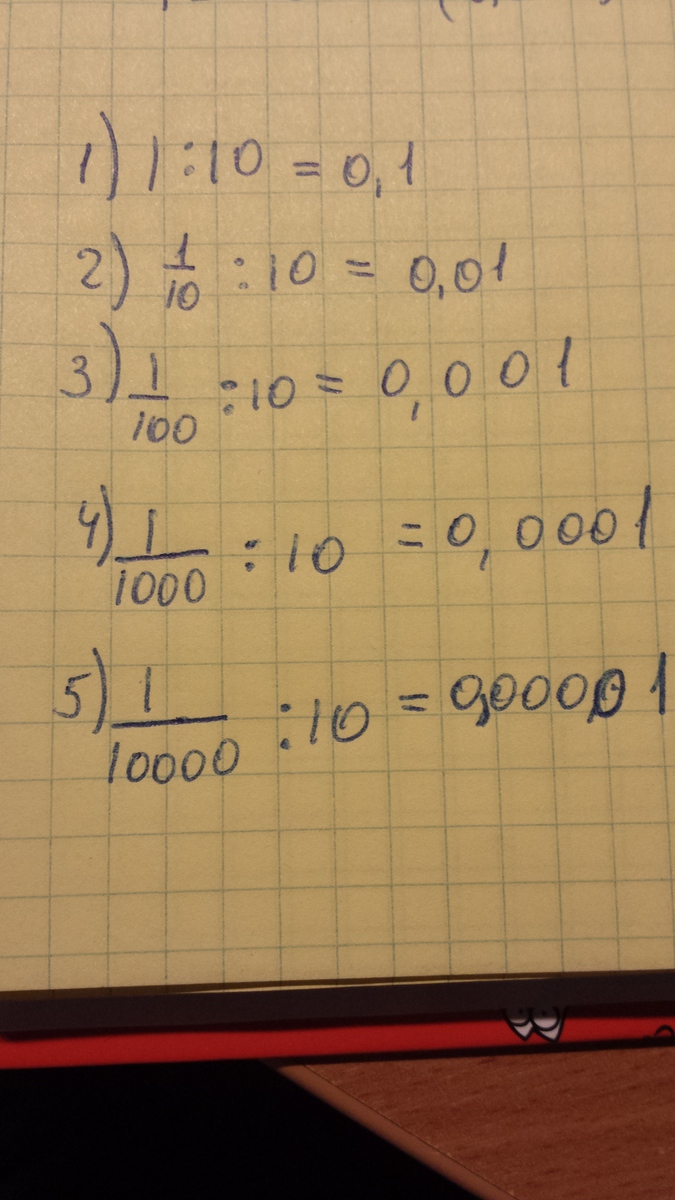 1) 1 : 10 = 0,1
2) 1/10 : 10 = 0,01
3) 1/100 : 10 = 0,001
4) 1/1000 : 10 = 0,0001
5) 1/10000 : 10 = 0,00001